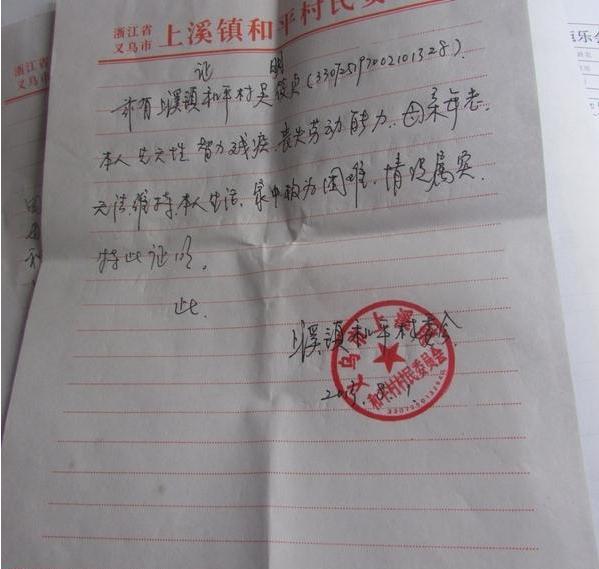 浙江省
义乌市 上溪镇和平村民委
证 明
兹有上溪镇和平村吴俊贞(330725197002101328).
本人先天性智力残疾.丧失劳动能力.母亲年老.
无法维持本人生活.家中较为困难.情况属实.
特此证明.
此.
上溪镇和平村委会
义乌市上溪镇
和平村村民委员会
2015.8.1.